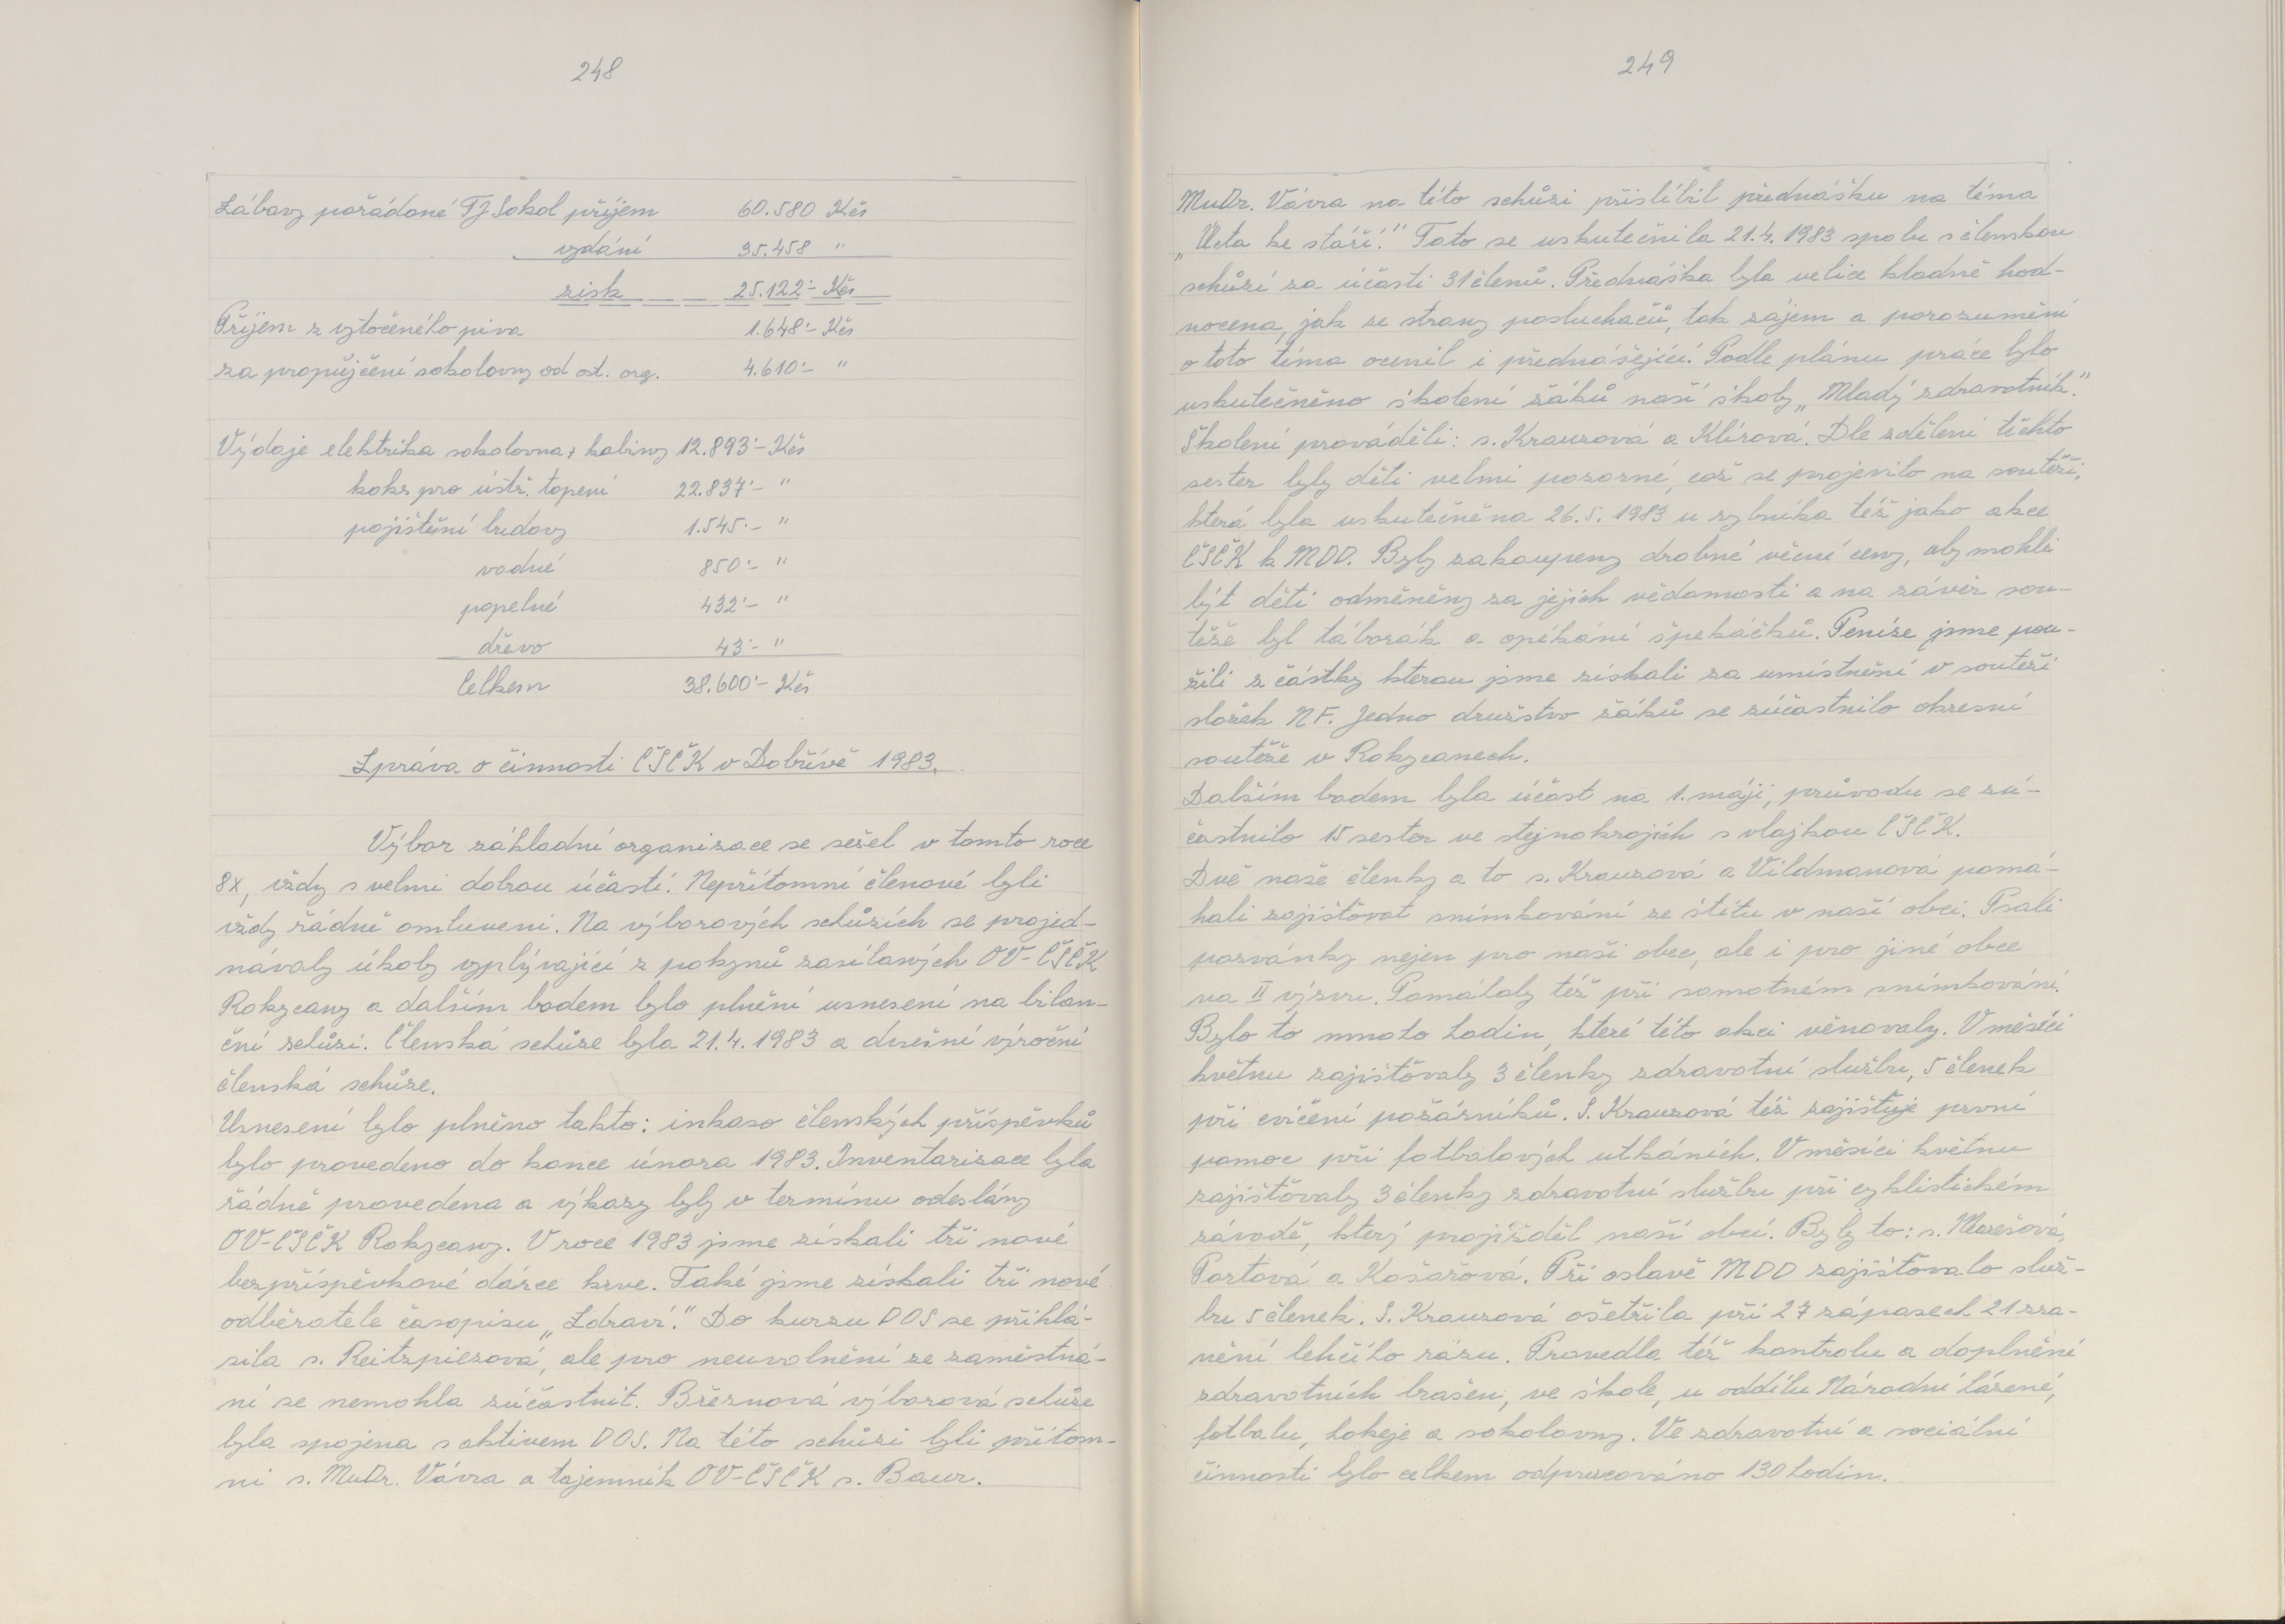 248
Zábavy pořádané TJ Sokol příjem 60.580 Kčs
vydání 35.458 "
zisk 25.122·- Kčs
Příjem z výtočeného piva 1.648·- Kčs
za propůjčení sokolovny od ost. org. 4.610·- "
Výdaje elektrika sokolovna + kabiny 12.893·- Kčs
koks pro ústř. topení 22.837·- "
pojištění budovy 1.545·- "
vodné 850·- "
popelné 432·- "
dřevo 43·- "
Celkem 38.600·- Kčs
Zpráva o činnosti ČSČK v Dobřívě 1983.
Výbor základní organizace se sešel v tomto roce
8x, vždy s velmi dobrou účastí. Nepřítomní členové byli
vždy řádně omluveni. Na výborových schůzích se projed-
návaly úkoly vyplývající z pokynů zasílaných OV-ČSČK
Rokycany a dalším bodem bylo plnění usnesení na bilan-
ční schůzi. Členská schůze byla 21.4.1983 a dnešní výroční
členská schůze.
Usnesení bylo plněno takto: inkaso členských příspěvků
bylo provedeno do konce února 1983. Inventarizace byla
řádně provedena a výkazy byly v termínu odeslány
OV-ČSČK Rokycany. V roce 1983 jsme získali tři nové
bezpříspěvkové dárce krve. Také jsme získali tři nové
odběratele časopisu „Zdraví." Do kurzu DOS se přihlá-
sila s. Reitspiesová, ale pro neuvolnění ze zaměstná-
ní se nemohla zúčastnit. Březnová výborová schůze
byla spojena s aktivem DOS. Na této schůzi byli přítom-
ni s. MuDr. Vávra a tajemník OV-ČSČK s. Baur.
249
MuDr. Vávra na této schůzi přislíbil přednášku na téma
„Úcta ke stáří." Tato se uskutečnila 21.4.1983 spolu s členskou
schůzí za účasti 31 členů. Přednáška byla velice kladně hod-
nocena, jak ze strany posluchačů, tak zájem a porozumění
o toto téma ocenil i přednášející. Podle plánu práce bylo
uskutečněno školení žáků naší školy „Mladý zdravotník."
Školení prováděli: s. Krauzová a Klírová. Dle sdělení těchto
sester byly děti velmi pozorné, což se projevilo na soutěži,
která byla uskutečněna 26.5.1983 u rybníka též jako akce
ČSČK k MDD. Byly zakoupeny drobné věcné ceny, aby mohli
být děti odměněny za jejich vědomosti a na závěr sou-
těže byl táborák a opékání špekáčků. Peníze jsme pou-
žili z částky kterou jsme získali za umístnění v soutěži
složek NF. Jedno družstvo žáků se zúčastnilo okresní
soutěže v Rokycanech.
Dalším bodem byla účast na 1. máji, průvodu se zú-
častnilo 15 sester ve stejnokrojích s vlajkou ČSČK.
Dvě naše členky a to s. Krauzová a Vildmanová pomá-
hali zajišťovat snímkování ze štítu v naší obci. Psali
pozvánky nejen pro naši obec, ale i pro jiné obce
na II výzvu. Pomáhaly též při samotném snímkování.
Bylo to mnoho hodin, které této akci věnovaly. V měsíci
květnu zajišťovaly 3 členky zdravotní službu, 5 členek
při cvičení požárníků. S. Krauzová též zajišťuje první
pomoc při fotbalových utkáních. V měsíci květnu
zajišťovaly 3 členky zdravotní službu při cyklistickém
závodě, který projížděl naší obcí. Byly to: s. Marešová,
Portová a Košařová. Při oslavě MDD zajišťovalo služ-
bu 5 členek. S. Krauzová ošetřila při 27 zápasech 21 zra-
nění lehčího rázu. Provedla též kontrolu a doplnění
zdravotních brašen, ve škole, u oddílu Národní házené,
fotbalu, hokeje a sokolovny. Ve zdravotní a sociální
činnosti bylo celkem odpracováno 130 hodin.